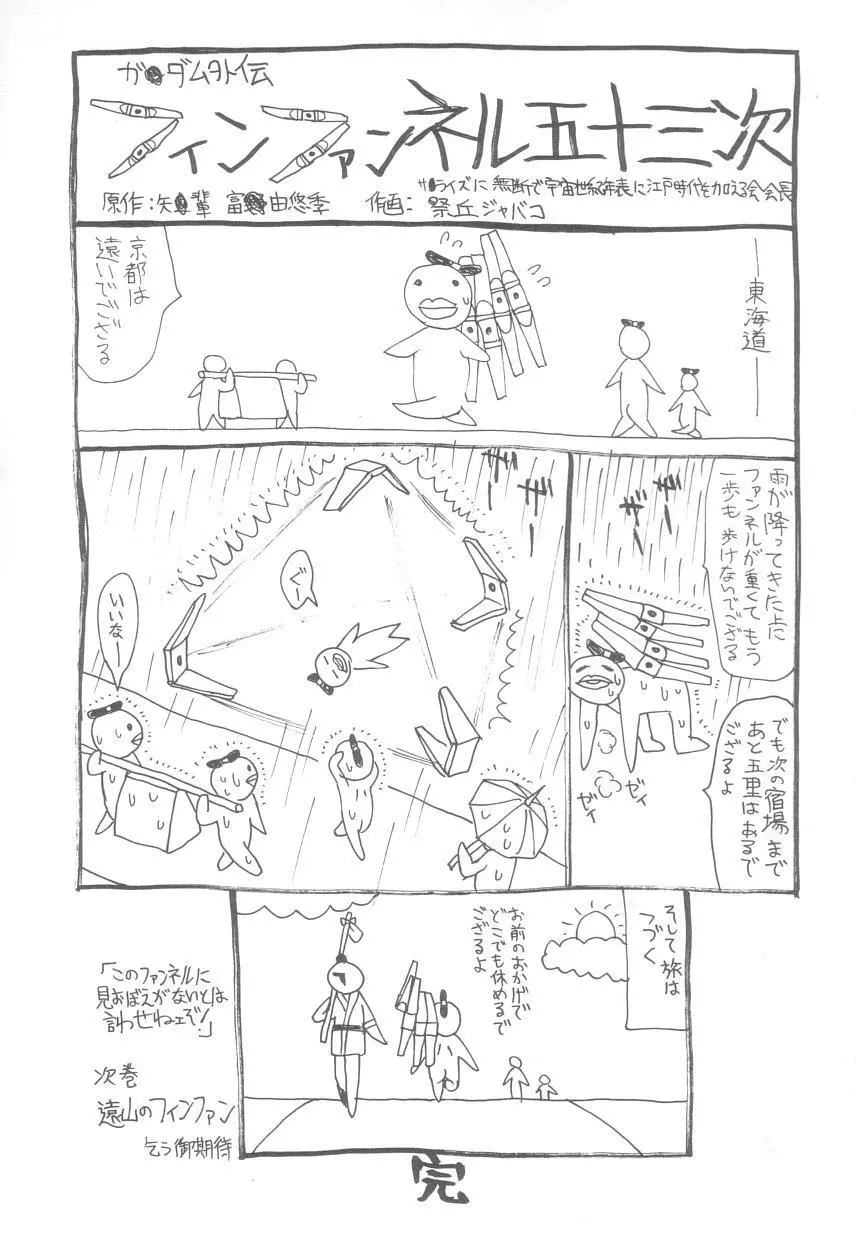 ガ●ダム外伝
フィンファンネル五十三次
サ●ライズに無断で宇宙世紀年表に江戸時代を加える会会長
原作:矢●輩 富●由悠季 作画:祭丘ジャバコ
―東海道―
京都は
遠いでござる
雨が降ってきた上に
ファンネルが重くてもう
一歩も歩けないでござる
でも次の宿場まで
あと五里はあるで
ござるよ
ギー
ギー
ゼィ
ゼィ
ギー
ギー
ぐー
いいなー
そして旅は
つづく
お前のおかげで
どこでも休めるで
ござるよ
「このファンネルに
見おぼえがないとは
言わせねェぞ!」
次巻
遠山のフィンファン
乞う御期待
完